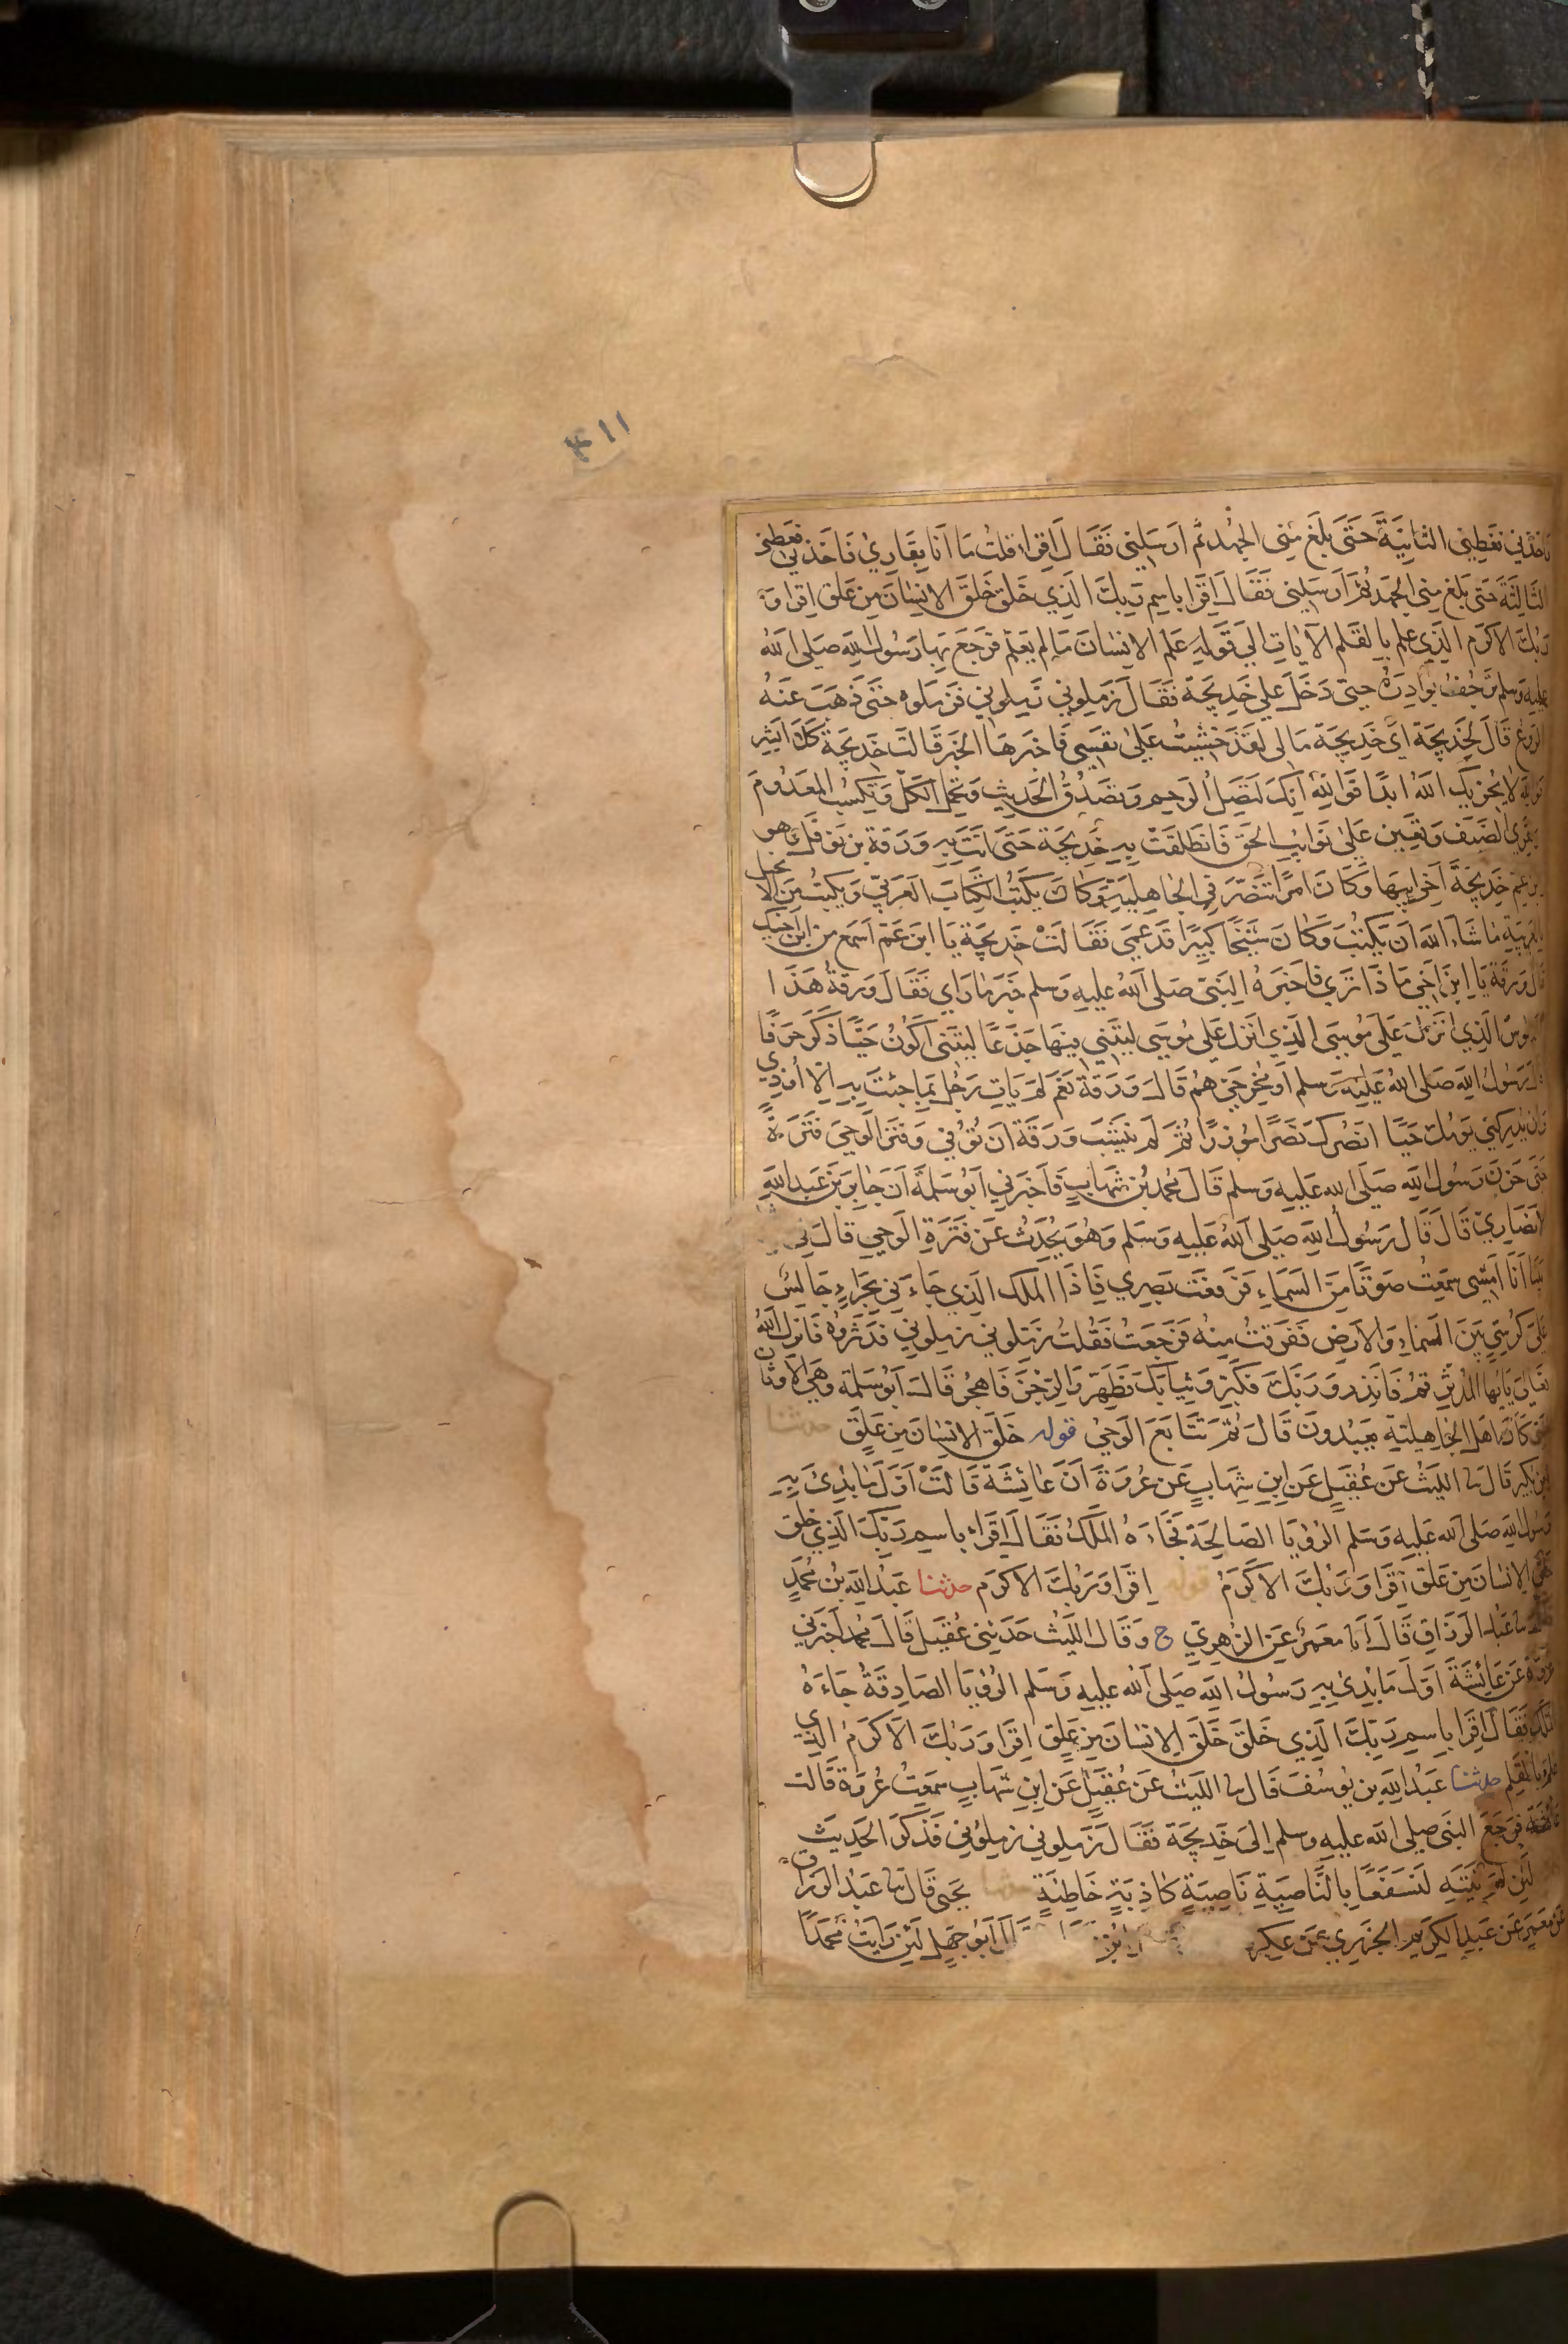 ٤١١
فاخذني فغطني الثانية حتى بلغ مني الجهد ثم ارسلني فقال اقرا قلت ما انا بقاري فاخذني فغطني
الثالثة حتى بلغ مني الجهد ثم ارسلني فقال اقرا باسم ربك الذي خلق خلق الانسان من علق اقرا و
ربك الاكرم الذي علم بالقلم الآيات الى قوله علم الانسان ما لم يعلم فرجع بها رسول الله صلى الله
عليه وسلم ترجف بوادره حتى دخل على خديجة فقال زملوني زملوني فزملوه حتى ذهب عنه
الروع قال لخديجة اي خديجة مالى لقد خشيت على نفسي فاخبرها الخبر قالت خديجة كلا ابشر
فوالله لا يخزيك الله ابدا فوالله انك لتصل الرحم وتصدق الحديث وتحمل الكل وتكسب المعدوم
وتقري الضيف وتعين على نوايب الحق فانطلقت به خديجة حتى اتت به ورقة بن نوفل وهو
ابن عم خديجة اخي ابيها وكان امرا تنصر في الجاهلية وكان يكتب الكتاب العربي ويكتب من الانجيل
بالعربية ما شاء الله ان يكتب وكان شيخا كبيرا قد عمي فقالت خديجة يا ابن عم اسمع من ابن اخيك
قال ورقة يا ابن اخي ماذا ترى فاخبره النبي صلى الله عليه وسلم خبر ما راي فقال ورقة هذا
الناموس الذي انزل على موسى الذي انزل على موسى ليتني فيها جذعا ليتني اكون حيا ذكر حرفا
قال رسول الله صلى الله عليه وسلم او مخرجي هم قال ورقة نعم لم يات رجل بما جئت به الا اوذي
وان يدركني يومك حيا انصرك نصرا موزرا ثم لم ينشب ورقة ان توفي وفتر الوحي فترة
حتى حزن رسول الله صلى الله عليه وسلم قال محمد بن شهاب فاخبرني ابو سلمة ان جابر بن عبد الله
الانصاري قال قال رسول الله صلى الله عليه وسلم وهو يحدث عن فترة الوحي قال في
بينا انا امشي سمعت صوتا من السماء فرفعت بصري فاذا الملك الذي جاءني بحراء جالس
على كرسي بين السماء والارض ففرقت منه فرجعت فقلت زملوني زملوني فدثروه فانزل الله
تعالى يايها المدثر قم فانذر وربك فكبر وثيابك فطهر والرجز فاهجر قال ابو سلمة وهي الاوثان
التي كان اهل الجاهلية يعبدون قال ثم تتابع الوحي قوله خلق الانسان من علق حدثنا
ابن بكير قال نا الليث عن عقيل عن ابن شهاب عن عروة ان عائشة قالت اول ما بدئ به
رسول الله صلى الله عليه وسلم الرؤيا الصالحة فجاءه الملك فقال اقراء باسم ربك الذي خلق
خلق الانسان من علق اقرا وربك الاكرم قوله اقرا وربك الاكرم حدثنا عبد الله بن محمد
نا عبد الرزاق قال انا معمر عن الزهري ح وقال الليث حدثني عقيل قال محمد اخبرني
عروة عن عائشة اول ما بدئ به رسول الله صلى الله عليه وسلم الرؤيا الصادقة جاءه
الملك فقال اقرا باسم ربك الذي خلق خلق الانسان من علق اقرا وربك الاكرم الذي
علم بالقلم حدثنا عبد الله بن يوسف قال نا الليث عن عقيل عن ابن شهاب سمعت عروة قالت
عائشة فرجع النبي صلى الله عليه وسلم الى خديجة فقال زملوني زملوني فذكر الحديث
لئن لم ينته لنسفعا بالناصية ناصية كاذبة خاطئة يحيى قال نا عبد الرزاق
عن معمر عن عبد الكريم الجزري عن عكر ابن قال ابو جهل لئن رايت محمدا